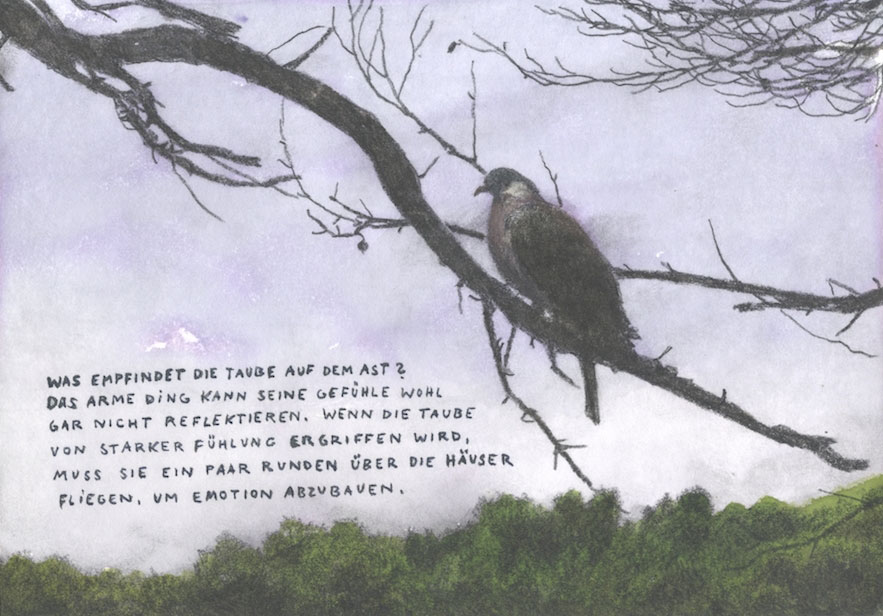 WAS EMPFINDET DIE TAUBE AUF DEM AST?
DAS ARME DING KANN SEINE GEFÜHLE WOHL
GAR NICHT REFLEKTIEREN. WENN DIE TAUBE
VON STARKER FÜHLUNG ERGRIFFEN WIRD,
MUSS SIE EIN PAAR RUNDEN ÜBER DIE HÄUSER
FLIEGEN, UM EMOTION ABZUBAUEN.